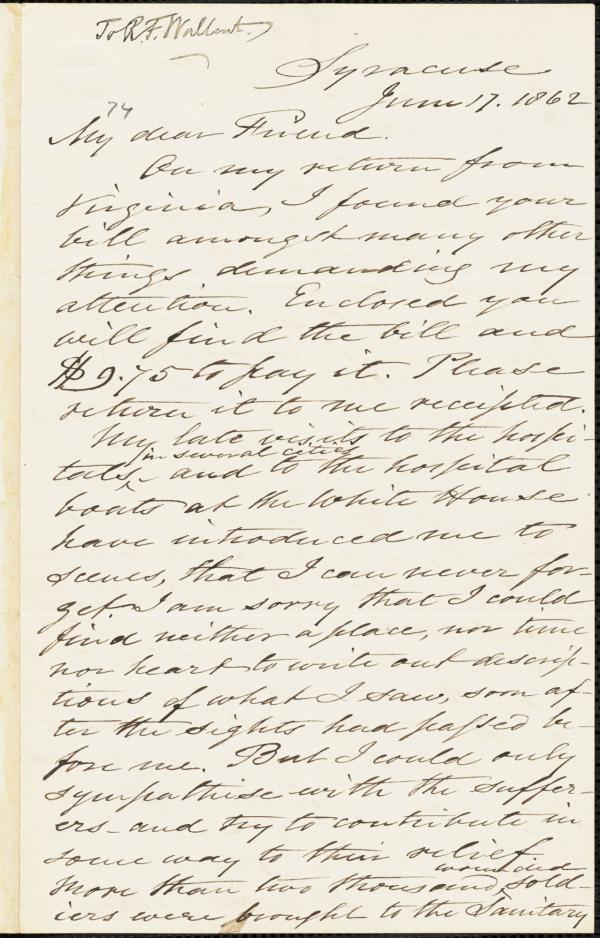 To R. F. Wallcut.
Syracuse
June 17. 1862
74
My dear Friend.
On my return from
Virginia, I found your
bill amongst many other
things demanding my
attention. Enclosed you
will find the bill and
$9.75 to pay it. Please
return it to me receipted.
My late visits to the hospi-
in several cities
tals, - and to the hospital
boats at the White House
have introduced me to
scenes, that I can never for-
get. I am sorry that I could
find neither a place, nor time
nor heart to write out descrip-
tions of what I saw, soon af-
ter the sights had passed be-
fore me. But I could only
sympathise with the suffer-
ers - and try to contribute in
some way to their relief.
wounded
More than two thousand sold-
iers were brought to the Sanitary